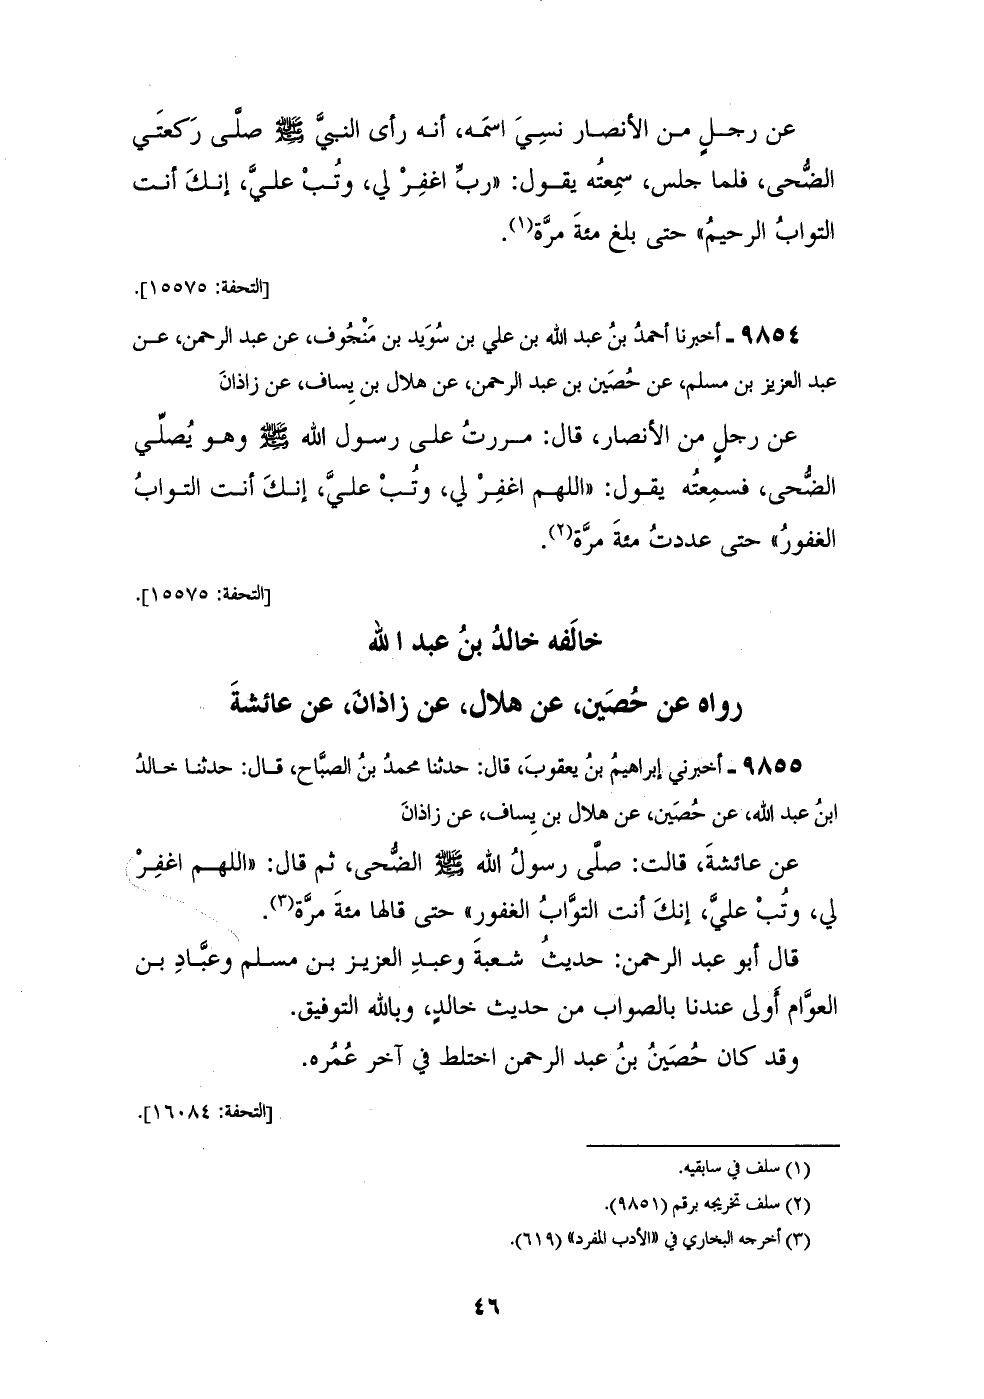 عن رجلٍ من الأنصار نسِيَ اسمَه، أنه رأى النبيَّ ﷺ صلَّى رَكعتَي
الضُّحى، فلما جلس، سمِعتُه يقول: «ربِّ اغفِرْ لي، وتُبْ عليَّ، إنكَ أنت
التوابُ الرحيمُ» حتى بلغ مئةَ مرَّة(١).
[التحفة: ١٥٥٧٥].
٩٨٥٤ ـ أخبرنا أحمدُ بنُ عبد الله بن علي بن سُوَيد بن مَنْجُوف، عن عبد الرحمن، عن
عبد العزيز بن مسلم، عن حُصَين بن عبد الرحمن، عن هلال بن يِساف، عن زاذانَ
عن رجلٍ من الأنصار، قال: مررتُ على رسول الله ﷺ وهو يُصلِّي
الضُّحى، فسمِعتُه يقول: «اللهم اغفِرْ لي، وتُبْ عليَّ، إنكَ أنت التوابُ
الغفورُ» حتى عددتُ مئةَ مرَّة(٢).
[التحفة: ١٥٥٧٥].
خالَفه خالدُ بنُ عبد الله
رواه عن حُصَين، عن هلال، عن زاذانَ، عن عائشةَ
٩٨٥٥ ـ أخبرني إبراهيمُ بنُ يعقوبَ، قال: حدثنا محمدُ بنُ الصبَّاح، قال: حدثنا خالدُ
ابنُ عبد الله، عن حُصَين، عن هلال بن يِساف، عن زاذانَ
عن عائشةَ، قالت: صلَّى رسولُ الله ﷺ الضُّحى، ثم قال: «اللهم اغفِرْ
لي، وتُبْ عليَّ، إنكَ أنت التوَّابُ الغفور» حتى قالها مئةَ مرَّة(٣).
قال أبو عبد الرحمن: حديثُ شعبةَ وعبدِ العزيز بن مسلم وعبَّادِ بن
العوَّام أَولى عندنا بالصواب من حديث خالدٍ، وبالله التوفيق.
وقد كان حُصَينُ بنُ عبد الرحمن اختلط في آخر عُمُره.
[التحفة: ١٦٠٨٤].
(١) سلف في سابقيه.
(٢) سلف تخريجه برقم (٩٨٥١).
(٣) أخرجه البخاري في «الأدب المفرد» (٦١٩).
٤٦